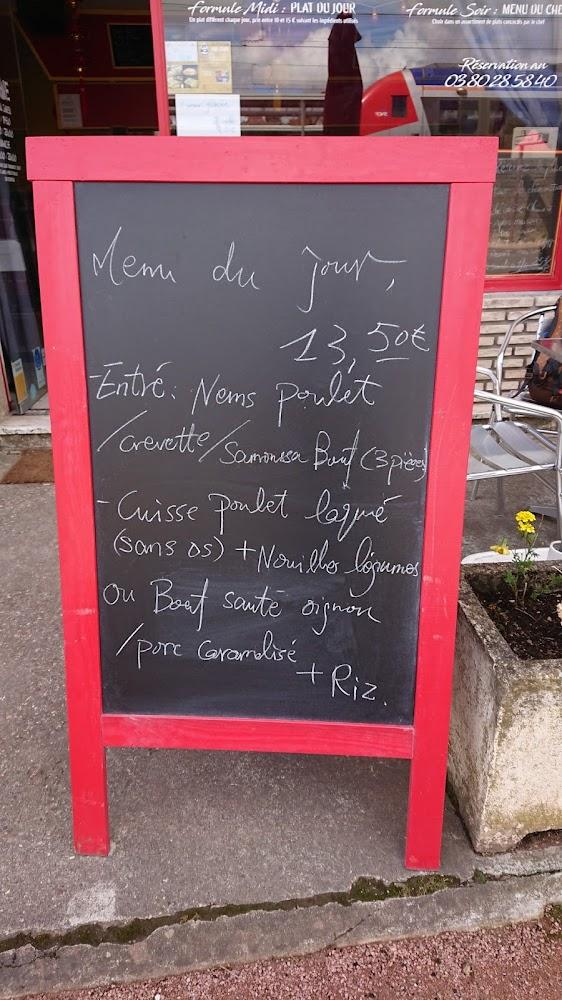 Formule Midi : PLAT DU JOUR
Un plat différent chaque jour, prix entre 10 et 15 € suivant les ingrédients utilisés
Formule Soir : MENU DU CHE
Choix dans un assortiment de plats concoctés par le chef
Réservation au
03 80 28 58 40
Menu du jour,
13,50€
-Entré: Nems poulet
/crevette/Samoussa Bœuf (3 pièces)
- Cuisse poulet laqué
(sans os) + Nouilles légumes
ou Bœuf sauté oignon
/porc Caramélisé
+ Riz.